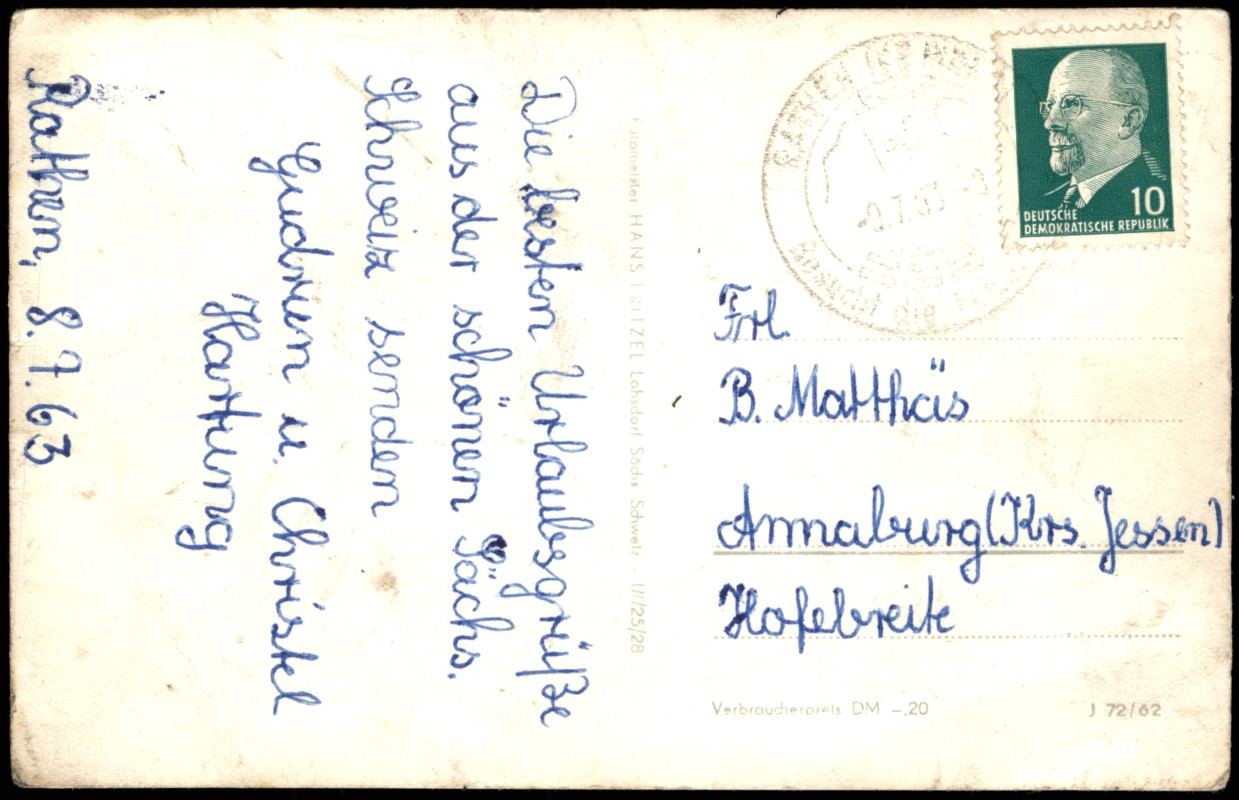 Rathen, 8.7.63
Die besten Urlaubsgrüße
aus der schönen Sächs.
Schweiz senden
Gudrun u. Christel
Hartung
Fotomeister HANS Lohsdorf Sächs Schweiz - III/25/28
RATHEN
-9.7.63
Besucht die
10
DEUTSCHE
DEMOKRATISCHE REPUBLIK
Frl.
B. Matthäs
Annaburg (Krs. Jessen)
Hofebreite
Verbraucherpreis DM -,20
J 72/62